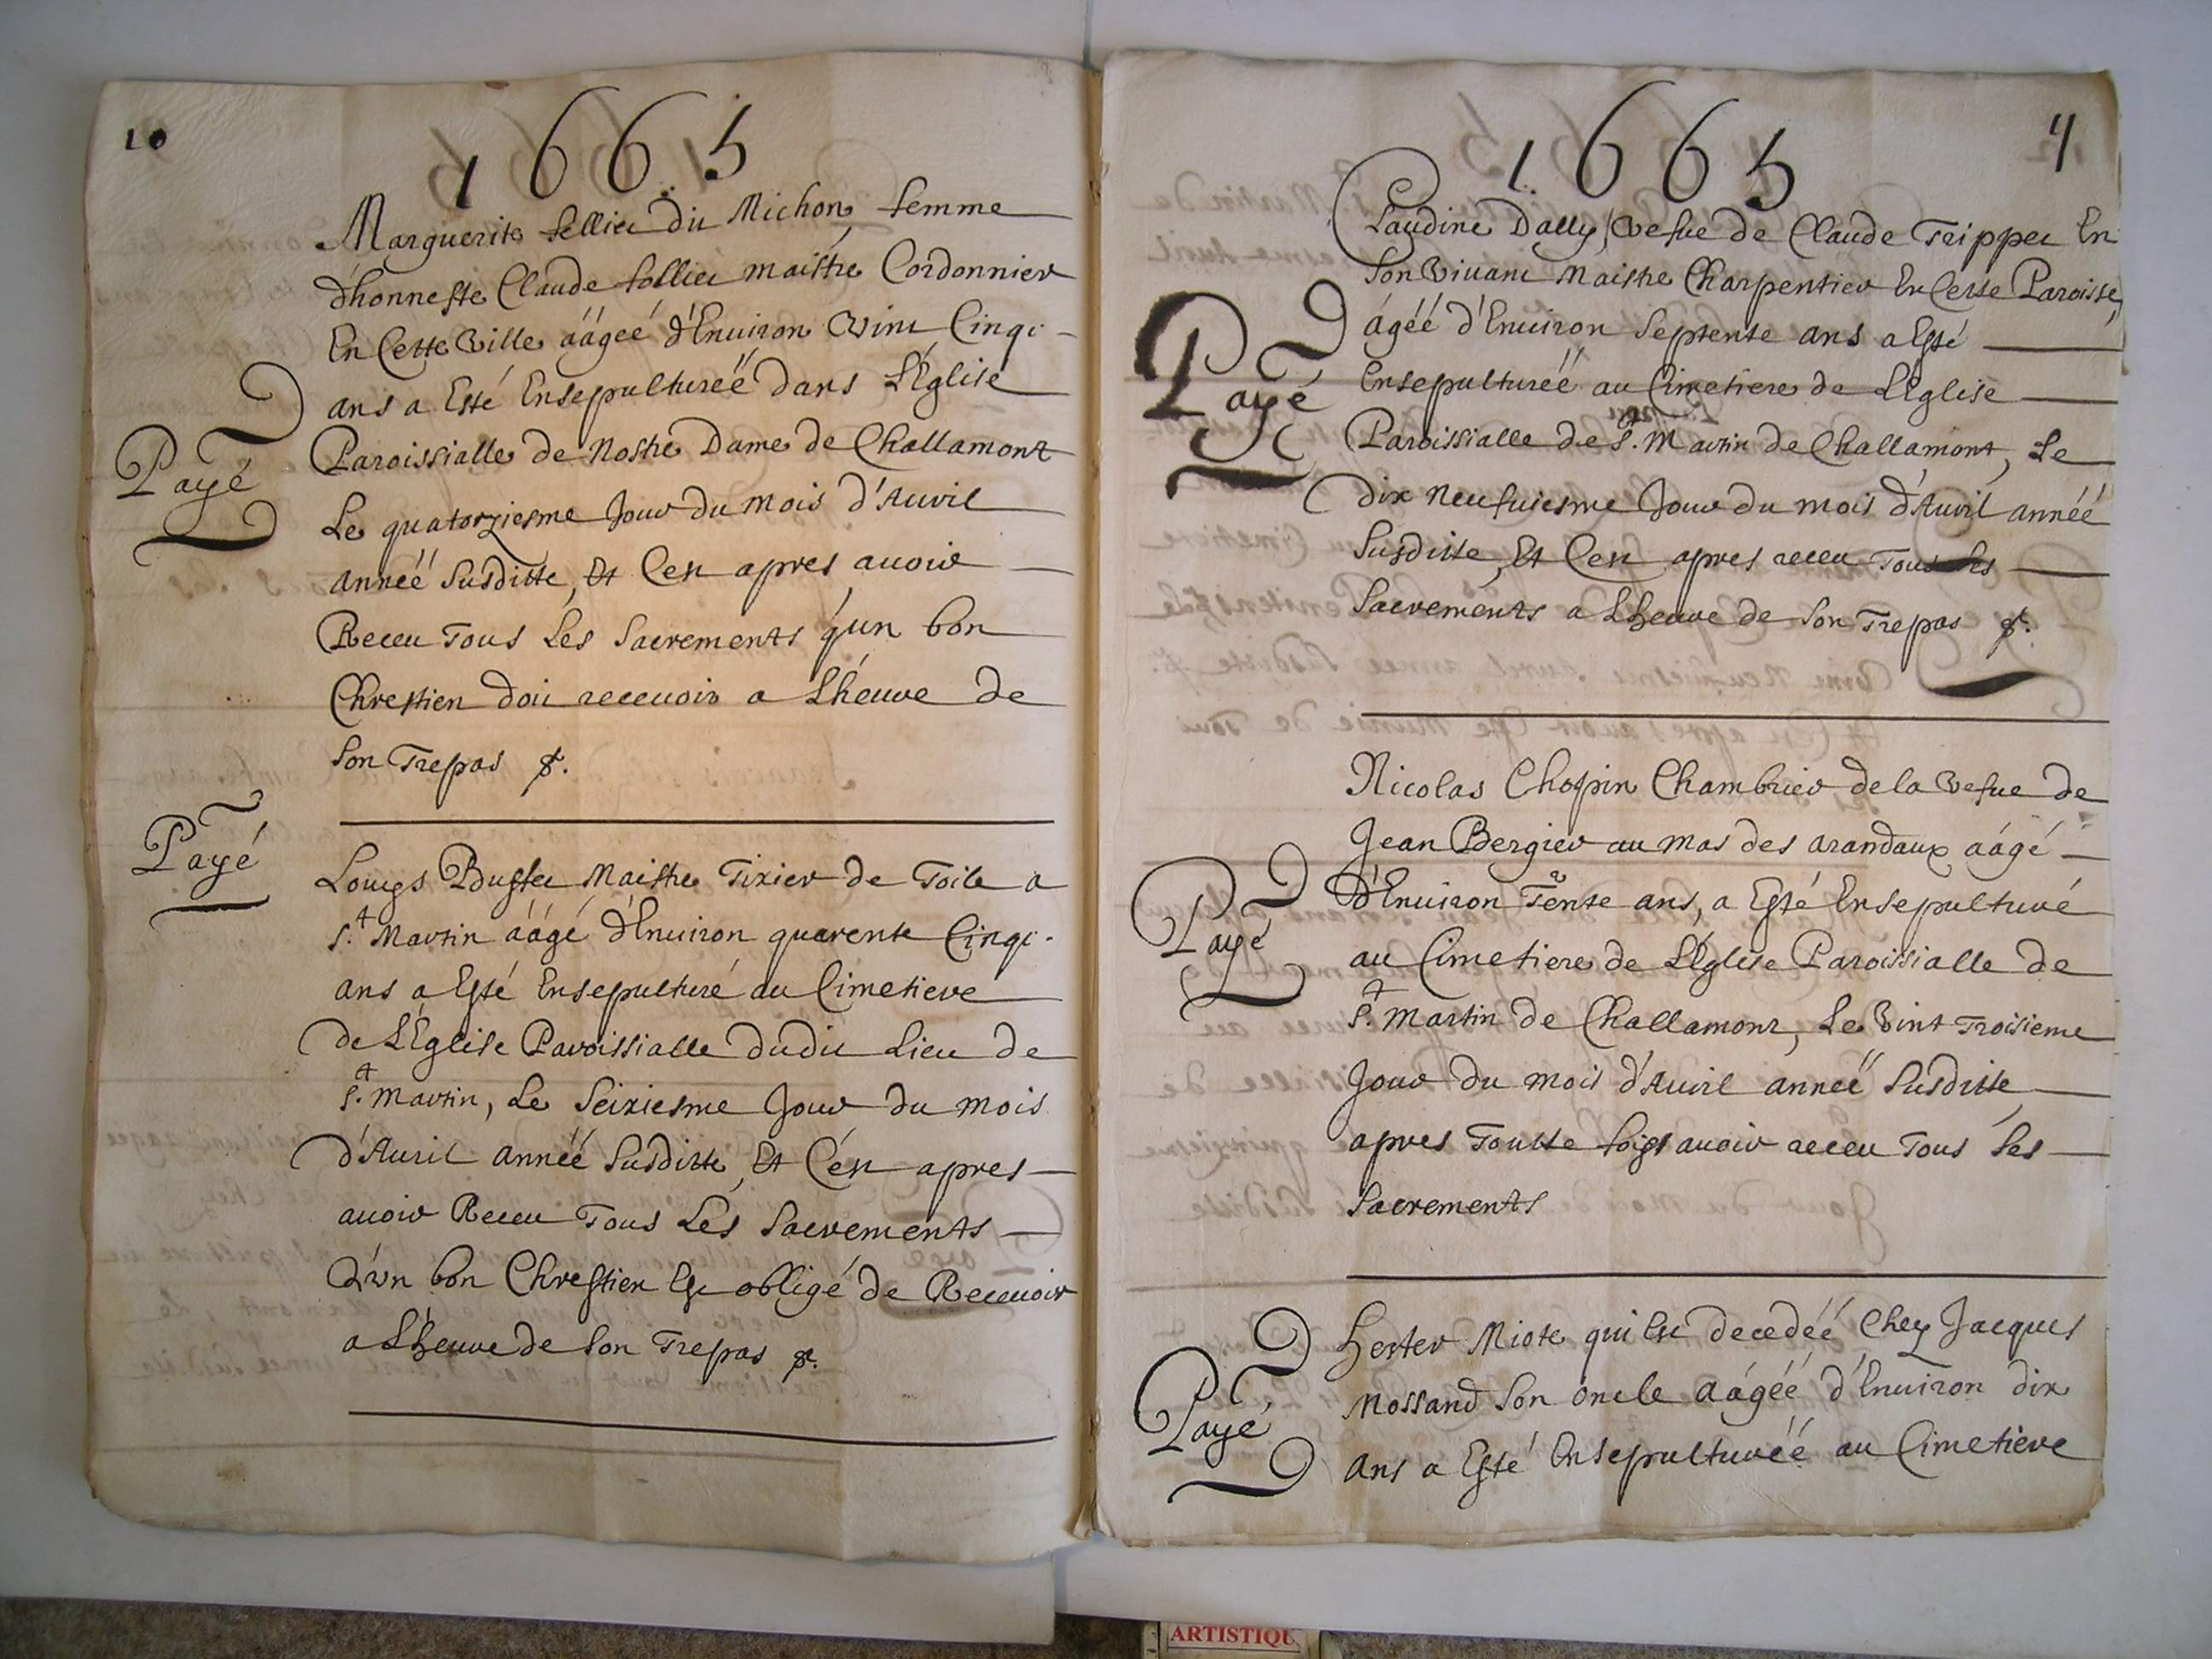 10
1665
Marguerite fellier dit Michon, femme
d'honneste Claude follier maistre Cordonnier
En Cette Ville ââgeé d'Enuiron Vint Cinq
ans a Esté Ensepultureë dans L'Eglise
Paroissialle de Nostre Dame de Challamont
Payé
Le quatorziesme Jour du mois d'Auril
anneë Susditte, Et Cest apres auoir
Receu Tous Les Sacrements q'un bon
Chrestien doit receuoir a L'heure de
Son Trepas &.
Payé
Louys Buffet Maistre Tixier de Toile a
St. Martin ââgé d'Enuiron quarente Cinq
ans a Esté Ensepulturé au Cimetiere
de L'Eglise Paroissialle dudit Lieu de
St. Martin, Le Seiziesme Jour du mois
d'Auril anneé Susditte, Et C'est apres
auoir Receu Tous Les Sacrements
Q'un bon Chrestien Est obligé de Receuoir
a L'heure de Son Trepas &.
1665
Claudine Dally, Vefue de Claude Tripper En
Son Viuant Maistre Charpentier En Cette Paroisse,
âgéé d'Enuiron Septente ans a Esté
Payé
Ensepulturéé au Cimetiere de L'Eglise
Paroissialle de St. Martin de Challamont, Le
dix Neufuiesme Jour du mois d'Auril annéé
Susditte, Et Cest apres receu Tous Les
Sacrements a L'heure de Son Trepas &.
Nicolas Chopin Chambrier de la Vefue de
Jean Bergier au mas des arandaux aâgé
d'Enuiron Trente ans, a Esté Ensepulturé
Payé
au Cimetiere de L'Eglise Paroissialle de
St. Martin de Challamont, Le Vint Troisieme
Jour du mois d'Auril anneë Susditte
apres Toutte foys auoir receu Tous Les
Sacrements
Hester Miote qui Est decedéé Chez Jacques
Mossand Son oncle aâgéé d'Enuiron dix
Payé
ans a Esté Ensepulturéé au Cimetiere
ARTISTIQU